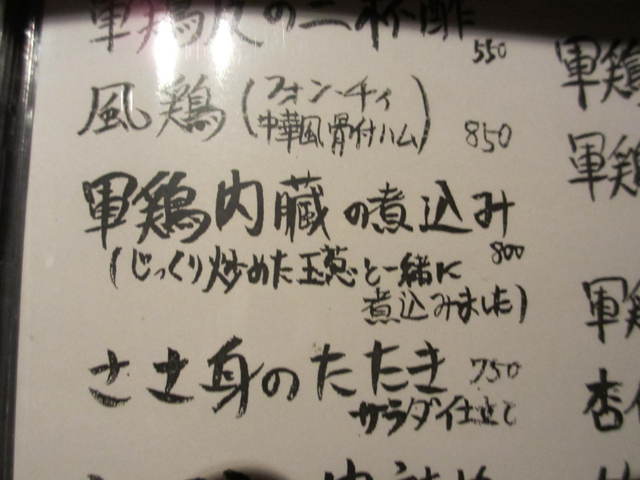 軍鶏皮の二杯酢
550
風鶏(フォンチィ
中華風骨付ハム)
850
軍鶏内臓の煮込み
800
(じっくり炒めた玉葱と一緒に
煮込みました)
ささ身のたたき 750
サラダ仕立て
軍鶏
軍鶏
軍鶏
杏